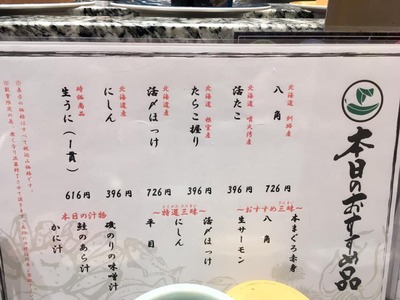 本日のおすすめ品
北海道 釧路産
八角
726円
北海道 噴火湾産
活たこ
396円
北海道 根室産
たらこ握り
396円
北海道産
活〆ほっけ
726円
北海道産
にしん
396円
時価商品
生うに(1貫)
616円
~おすすめ三昧~
本まぐろ赤身
八角
生サーモン
~特選三昧~
活〆ほっけ
にしん
平目
本日の汁物
磯のりの味噌汁
鮭のあら汁
かに汁